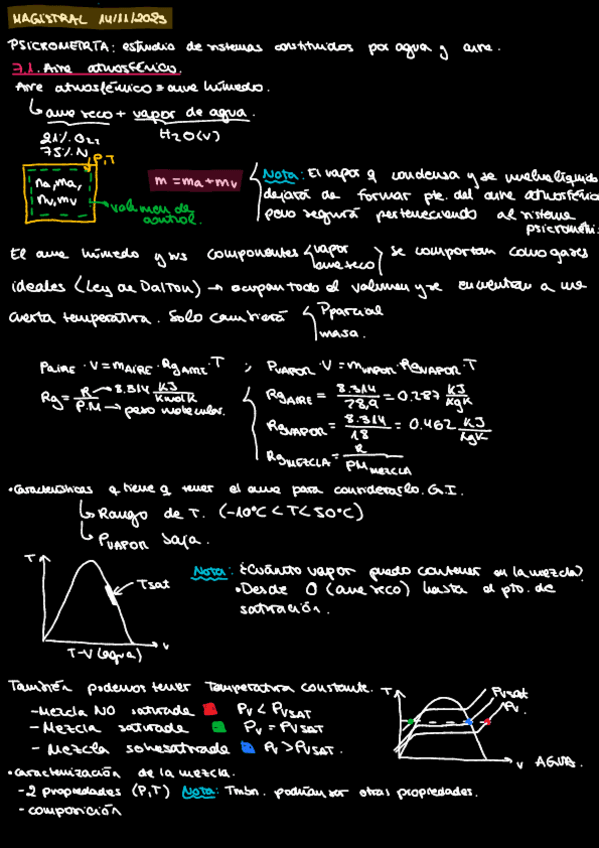 MAGISTRAL 14/11/2023
PSICROMETRÍA: estudio de sistemas constituidos por agua y aire.
7.1. Aire atmosférico.
Aire atmosférico = aire húmedo.
aire seco + vapor de agua.
21% O2, H2O(v)
75% N
P,T
na, ma,
nv, mv
volumen de
control.
m = ma + mv
Nota: El vapor q condensa y se vuelva líquido
dejará de formar pte. del aire atmosférico
pero seguirá perteneciendo al sistema
psicrométri
El aire húmedo y sus componentes vapor se comportan como gases
aire seco
ideales (Ley de Dalton) → ocupan todo el volumen y se encuentran a una
cierta temperatura. Solo cambiará Pparcial
masa.
PAIRE · V = mAIRE · RgAIRE · T ; PVAPOR · V = mVAPOR · RgVAPOR · T
Rg = R / P.M → 8.314 KJ / Kmol K
→ peso molecular.
RgAIRE = 8.314 / 28,9 = 0.287 KJ / KgK
RgVAPOR = 8.314 / 18 = 0.462 KJ / KgK
RgMEZCLA = R / PM MEZCLA
• Características q tiene q tener el aire para considerarlo G.I.
Rango de T. (-10°C < T < 50°C)
PVAPOR baja.
T
Tsat
v
T-V (agua)
Nota: ¿Cuánto vapor puedo contener en la mezcla?
• Desde 0 (aire seco) hasta el pto. de
saturación.
También podemos tener Temperatura constante.
- Mezcla NO saturada Pv < PvSAT
- Mezcla saturada Pv = PvSAT
- Mezcla sobresaturada Pv > PvSAT.
T
Pvsat
Pv
v AGUA.
• Caracterización de la mezcla.
- 2 propiedades (P,T) Nota: Tmbn. podrían ser otras propiedades.
- composición